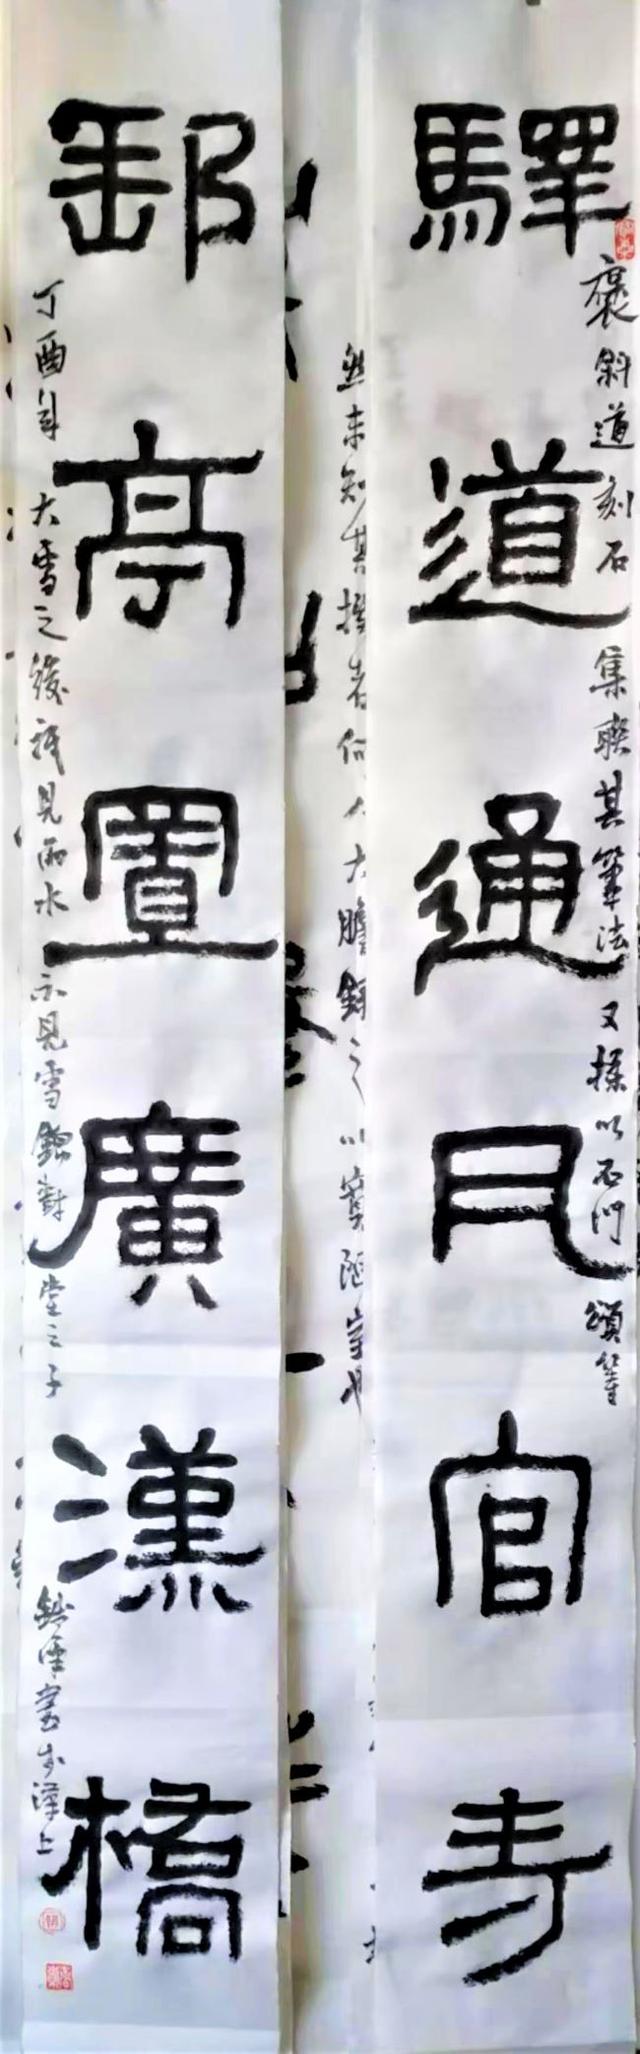 驛道通巴官寺
褒斜道刻石集聯其筆法又以石門頌等
然未知其撰者何人大膽錄之以陋室也
郵亭置廣漢橋
丁酉年大雪之後祇見雨水不見雪錦堂之子
書於漢上